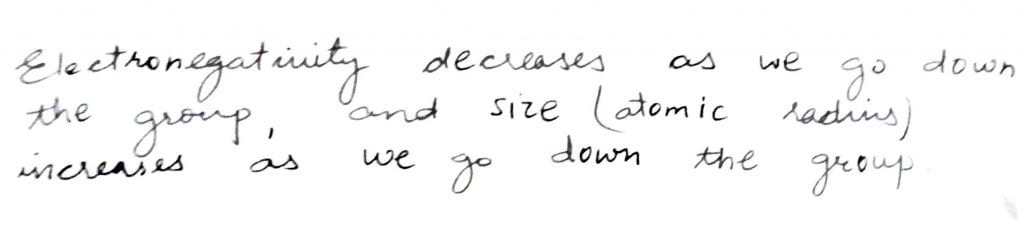 Electronegativity decreases as we go down
the group, and size (atomic radius)
increases as we go down the group.